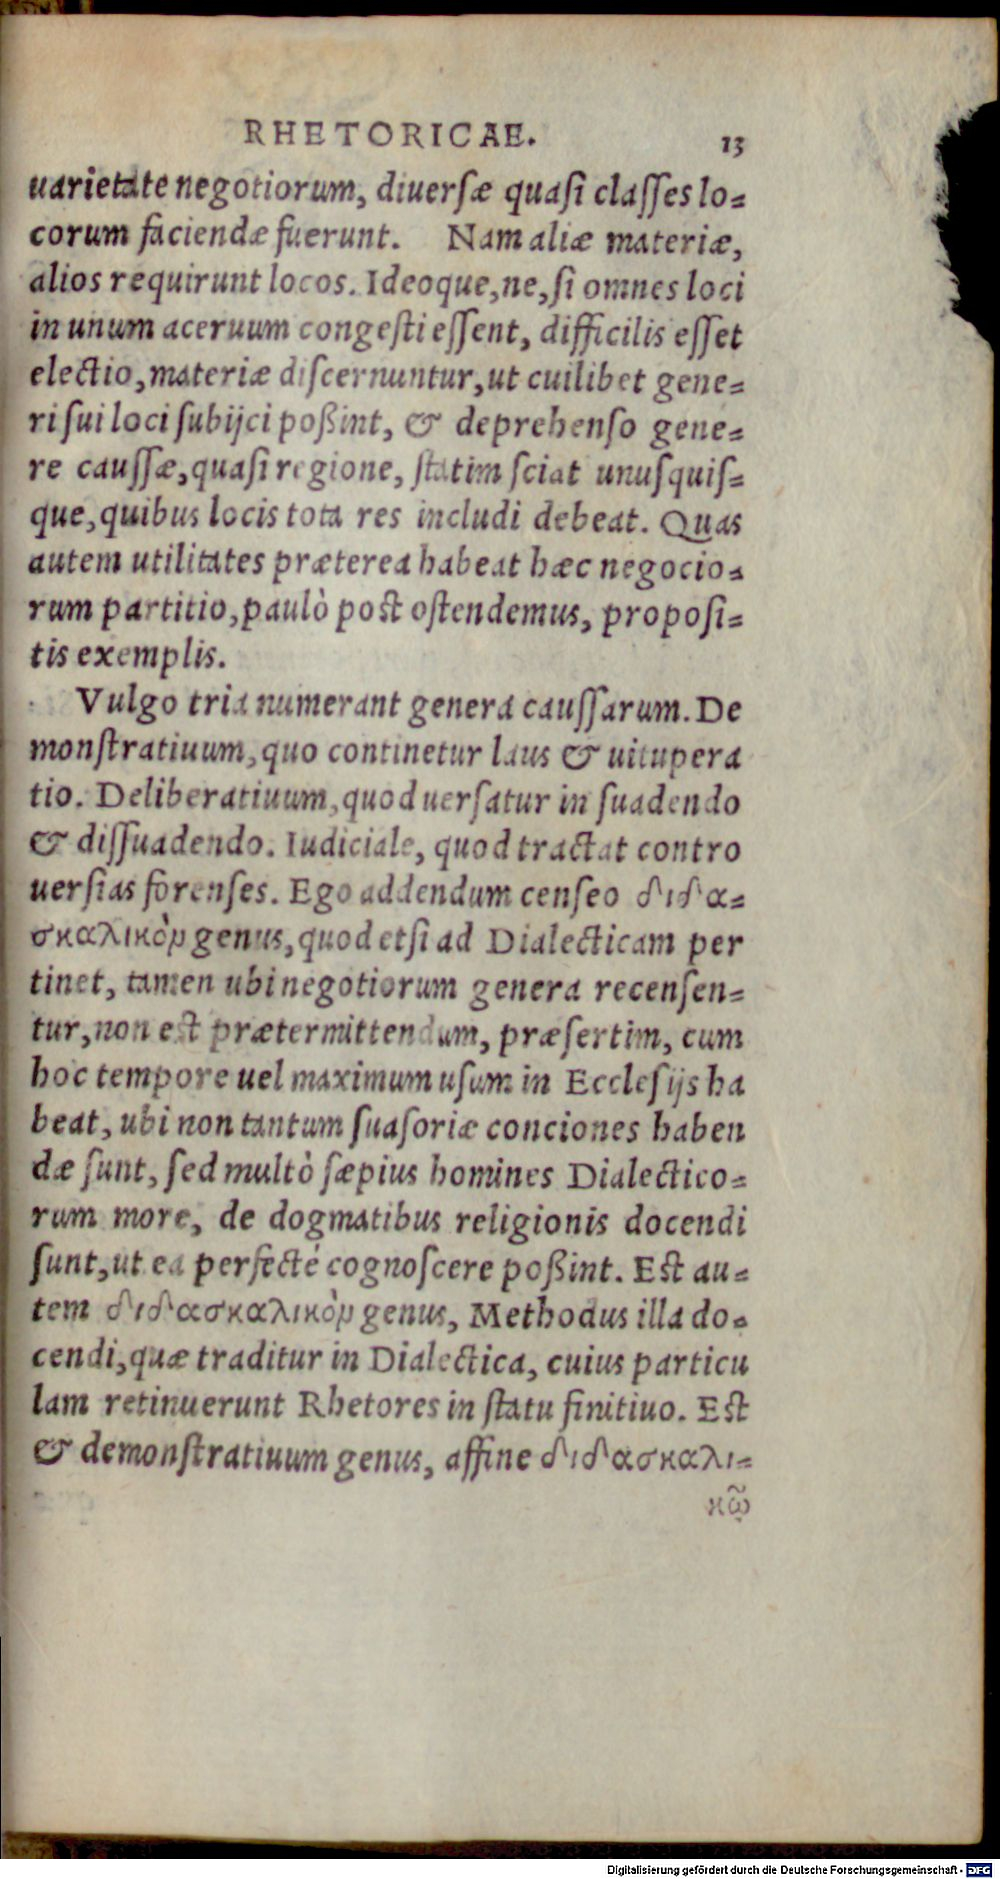 RHETORICAE. 13
uarietate negotiorum, diuersæ quasi classes lo-
corum faciendæ fuerunt. Nam aliæ materiæ,
alios requirunt locos. Ideoque, ne, si omnes loci
in unum aceruum congesti essent, difficilis esset
electio, materiæ discernuntur, ut cuilibet gene-
ri sui loci subijci poßint, & deprehenso gene-
re caussæ, quasi regione, statim sciat unusquis-
que, quibus locis tota res includi debeat. Quas
autem utilitates præterea habeat hæc negocio-
rum partitio, paulò post ostendemus, proposi-
tis exemplis.
Vulgo tria numerant genera caussarum. De
monstratiuum, quo continetur laus & uitupera
tio. Deliberatiuum, quod uersatur in suadendo
& dissuadendo. Iudiciale, quod tractat contro
uersias forenses. Ego addendum censeo διδα-
σκαλικὸν genus, quod etsi ad Dialecticam per
tinet, tamen ubi negotiorum genera recensen-
tur, non est prætermittendum, præsertim, cum
hoc tempore uel maximum usum in Ecclesijs ha
beat, ubi non tantum suasoriæ conciones haben
dæ sunt, sed multò sæpius homines Dialectico-
rum more, de dogmatibus religionis docendi
sunt, ut ea perfectè cognoscere poßint. Est au-
tem διδασκαλικὸν genus, Methodus illa do-
cendi, quæ traditur in Dialectica, cuius particu
lam retinuerunt Rhetores in statu finitiuo. Est
& demonstratiuum genus, affine διδασκαλι-
κῷ
Digitalisierung gefördert durch die Deutsche Forschungsgemeinschaft - DFG